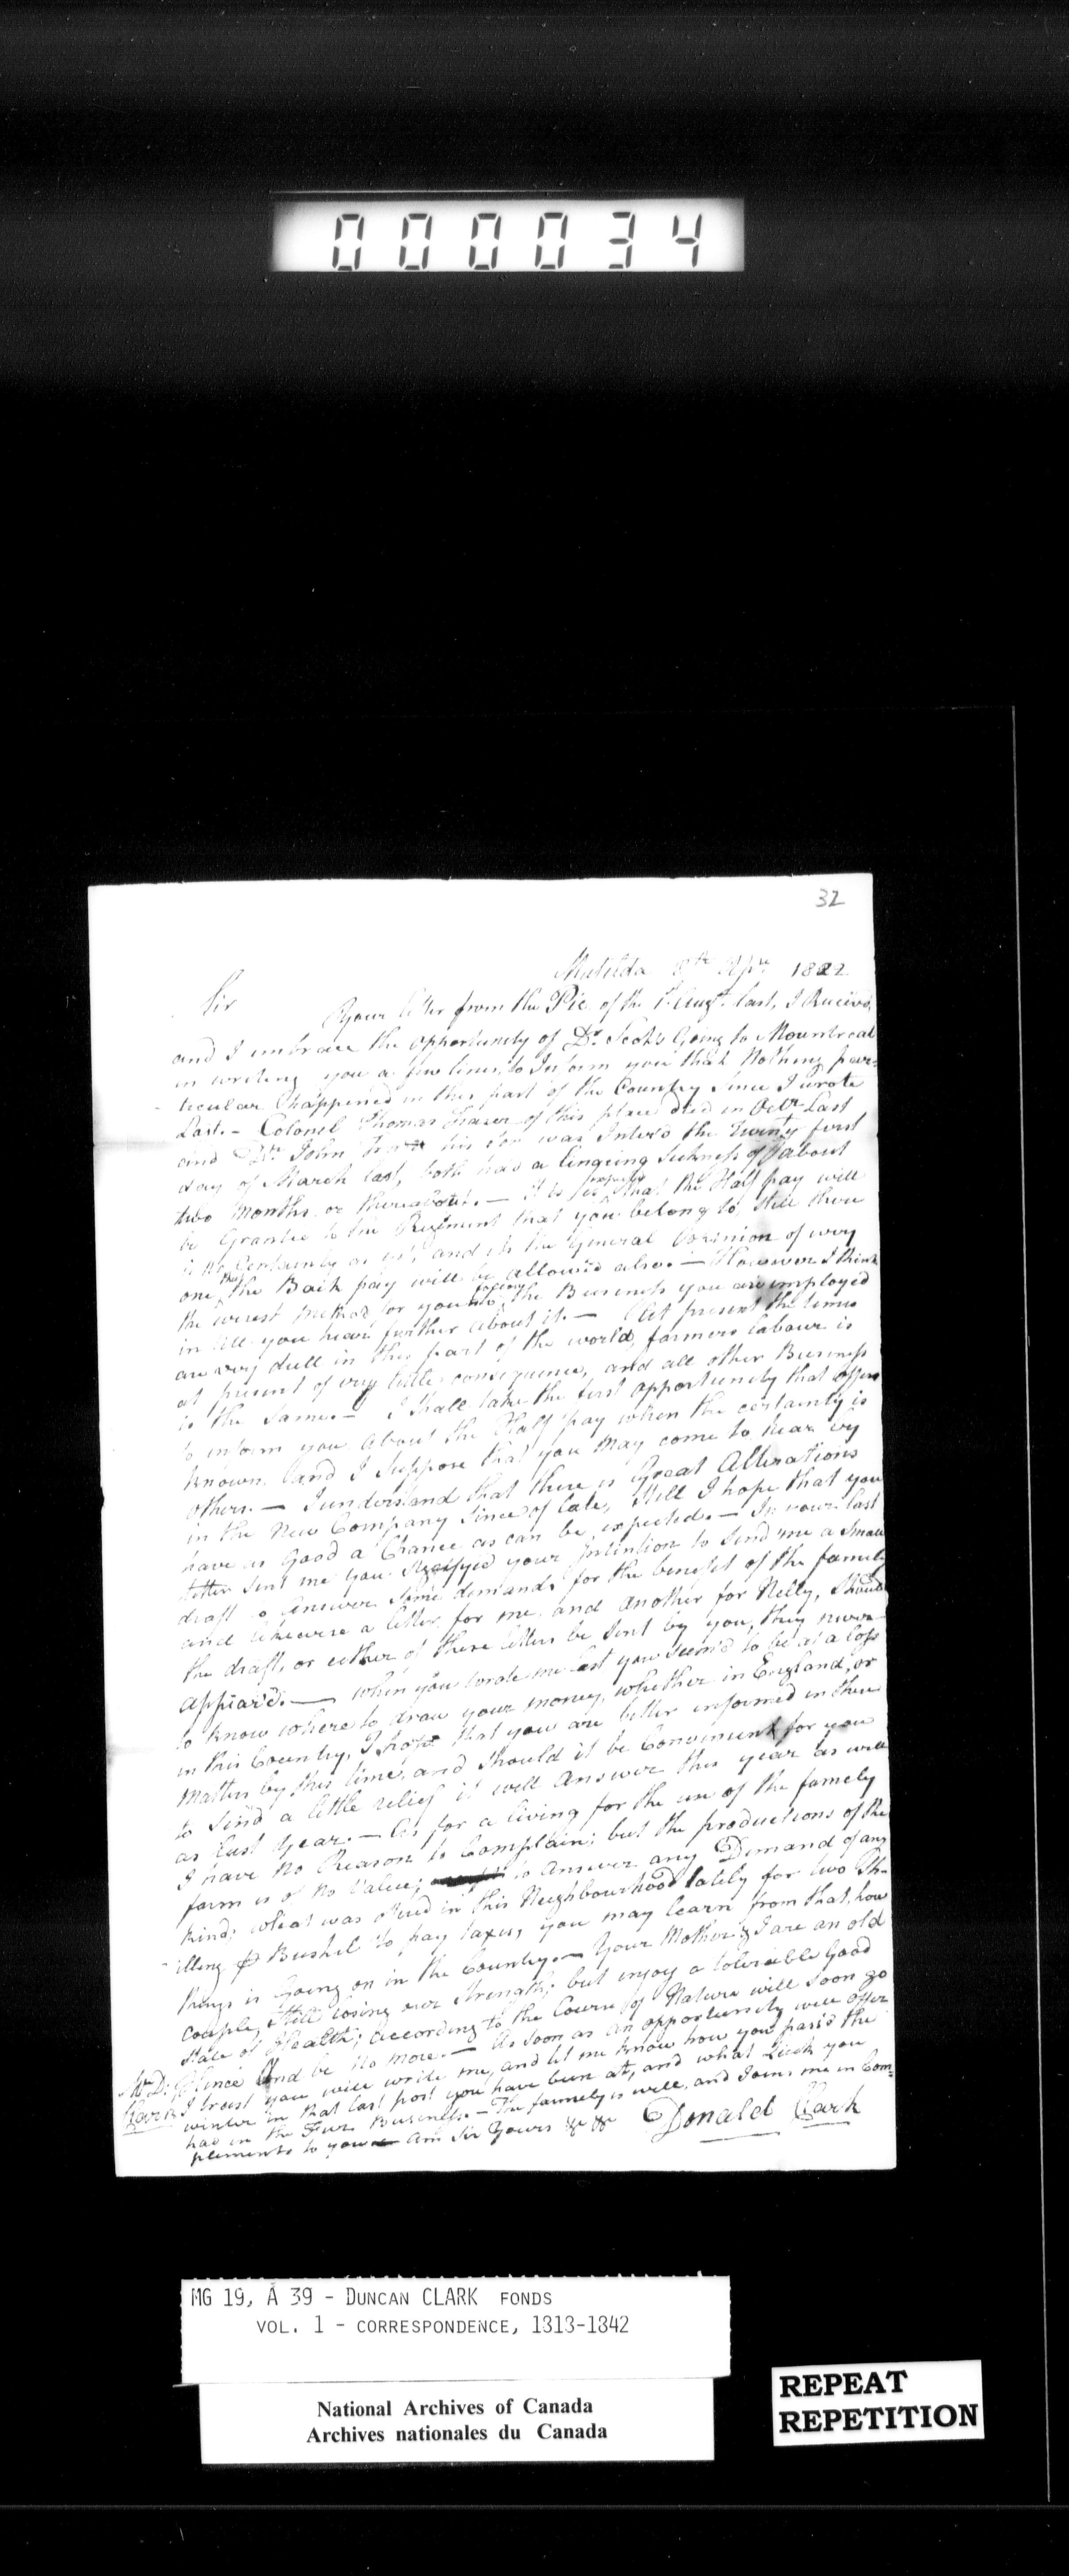 000034
32
Matilda 8th Apr. 1822
Sir
Your letter from the Pic of the 1st Augt. last, I Received,
and I embrace the opportunity of Dr. Scots Going to Mountreal
in writing you a few lines, to Inform you that Nothing par=
ticular happened in this part of the Country Since I wrote
Last. – Colonel Thomas Frazer of this place died in Octr. Last
and John his Son was Inter'd the Twenty first
day of March last, both had a lingering Sickness of about
two Months or thereabout. – It is supposed that the Half pay will
be Granted to the Regiment that you belong to, still there
is no Certainty as yet, and its the General Oppinion of every
one, that the Back pay will be allowed also. – However I think
the wisest method for you the Business you are employed
in till you hear further about it. – At present the times
are very dull in this part of the world, farmers labour is
at present of very little consequence, and all other Business
is the Same. – I shall take the first opportunity that offers
to inform you about the Half pay when the certainty is
known, and I Suppose that you May come to hear by
others. – I understand that there is Great Alterations
in the New Company Since of late, Still I hope that you
have as Good a Chance as can be expected. – In your last
letter Sent me you your Intention to Send me a Small
draft to Answer Some demands for the benefit of the family
and likewise a letter for me and another for Nelly, Should
the draft, or either of these letters be Sent by you, they never
appear'd. – When you wrote me last you Seem'd to be at a loss
to know where to draw your money, whether in England, or
in this Country, I hope that you are better informed in these
Matters by this time, and Should it be Convenient for you
to Send a little relief it will Answer this year as well
as last year. – As for a living for the use of the family
I have No Reason to Complain; but the productions of the
farm is of No Value; to Answer any Demand of any
kind; wheat was offered in this Neighbourhood lately for two Sh=
illing ⅌ Bushel to pay taxes, you may learn from that, how
things is Going on in the Country. – Your Mother & I are an old
couple, Still losing our Strength; but injoy a tolerable Good
State of Health; according to the Course of Nature will Soon go
hence And be No More. – As Soon as an opportunity will offer
I trust you will write me, and let me know how you pass'd the
winter in that last post you have been at, and what Luck you
had in the Fur Business. – The family is well, and Joins me in Com=
plements to you Am Sir Yours &c &c Donald Clark
Mr. D:
Clark
MG 19, A 39 - DUNCAN CLARK FONDS
VOL. 1 - CORRESPONDENCE, 1813-1842
National Archives of Canada
Archives nationales du Canada
REPEAT
REPETITION